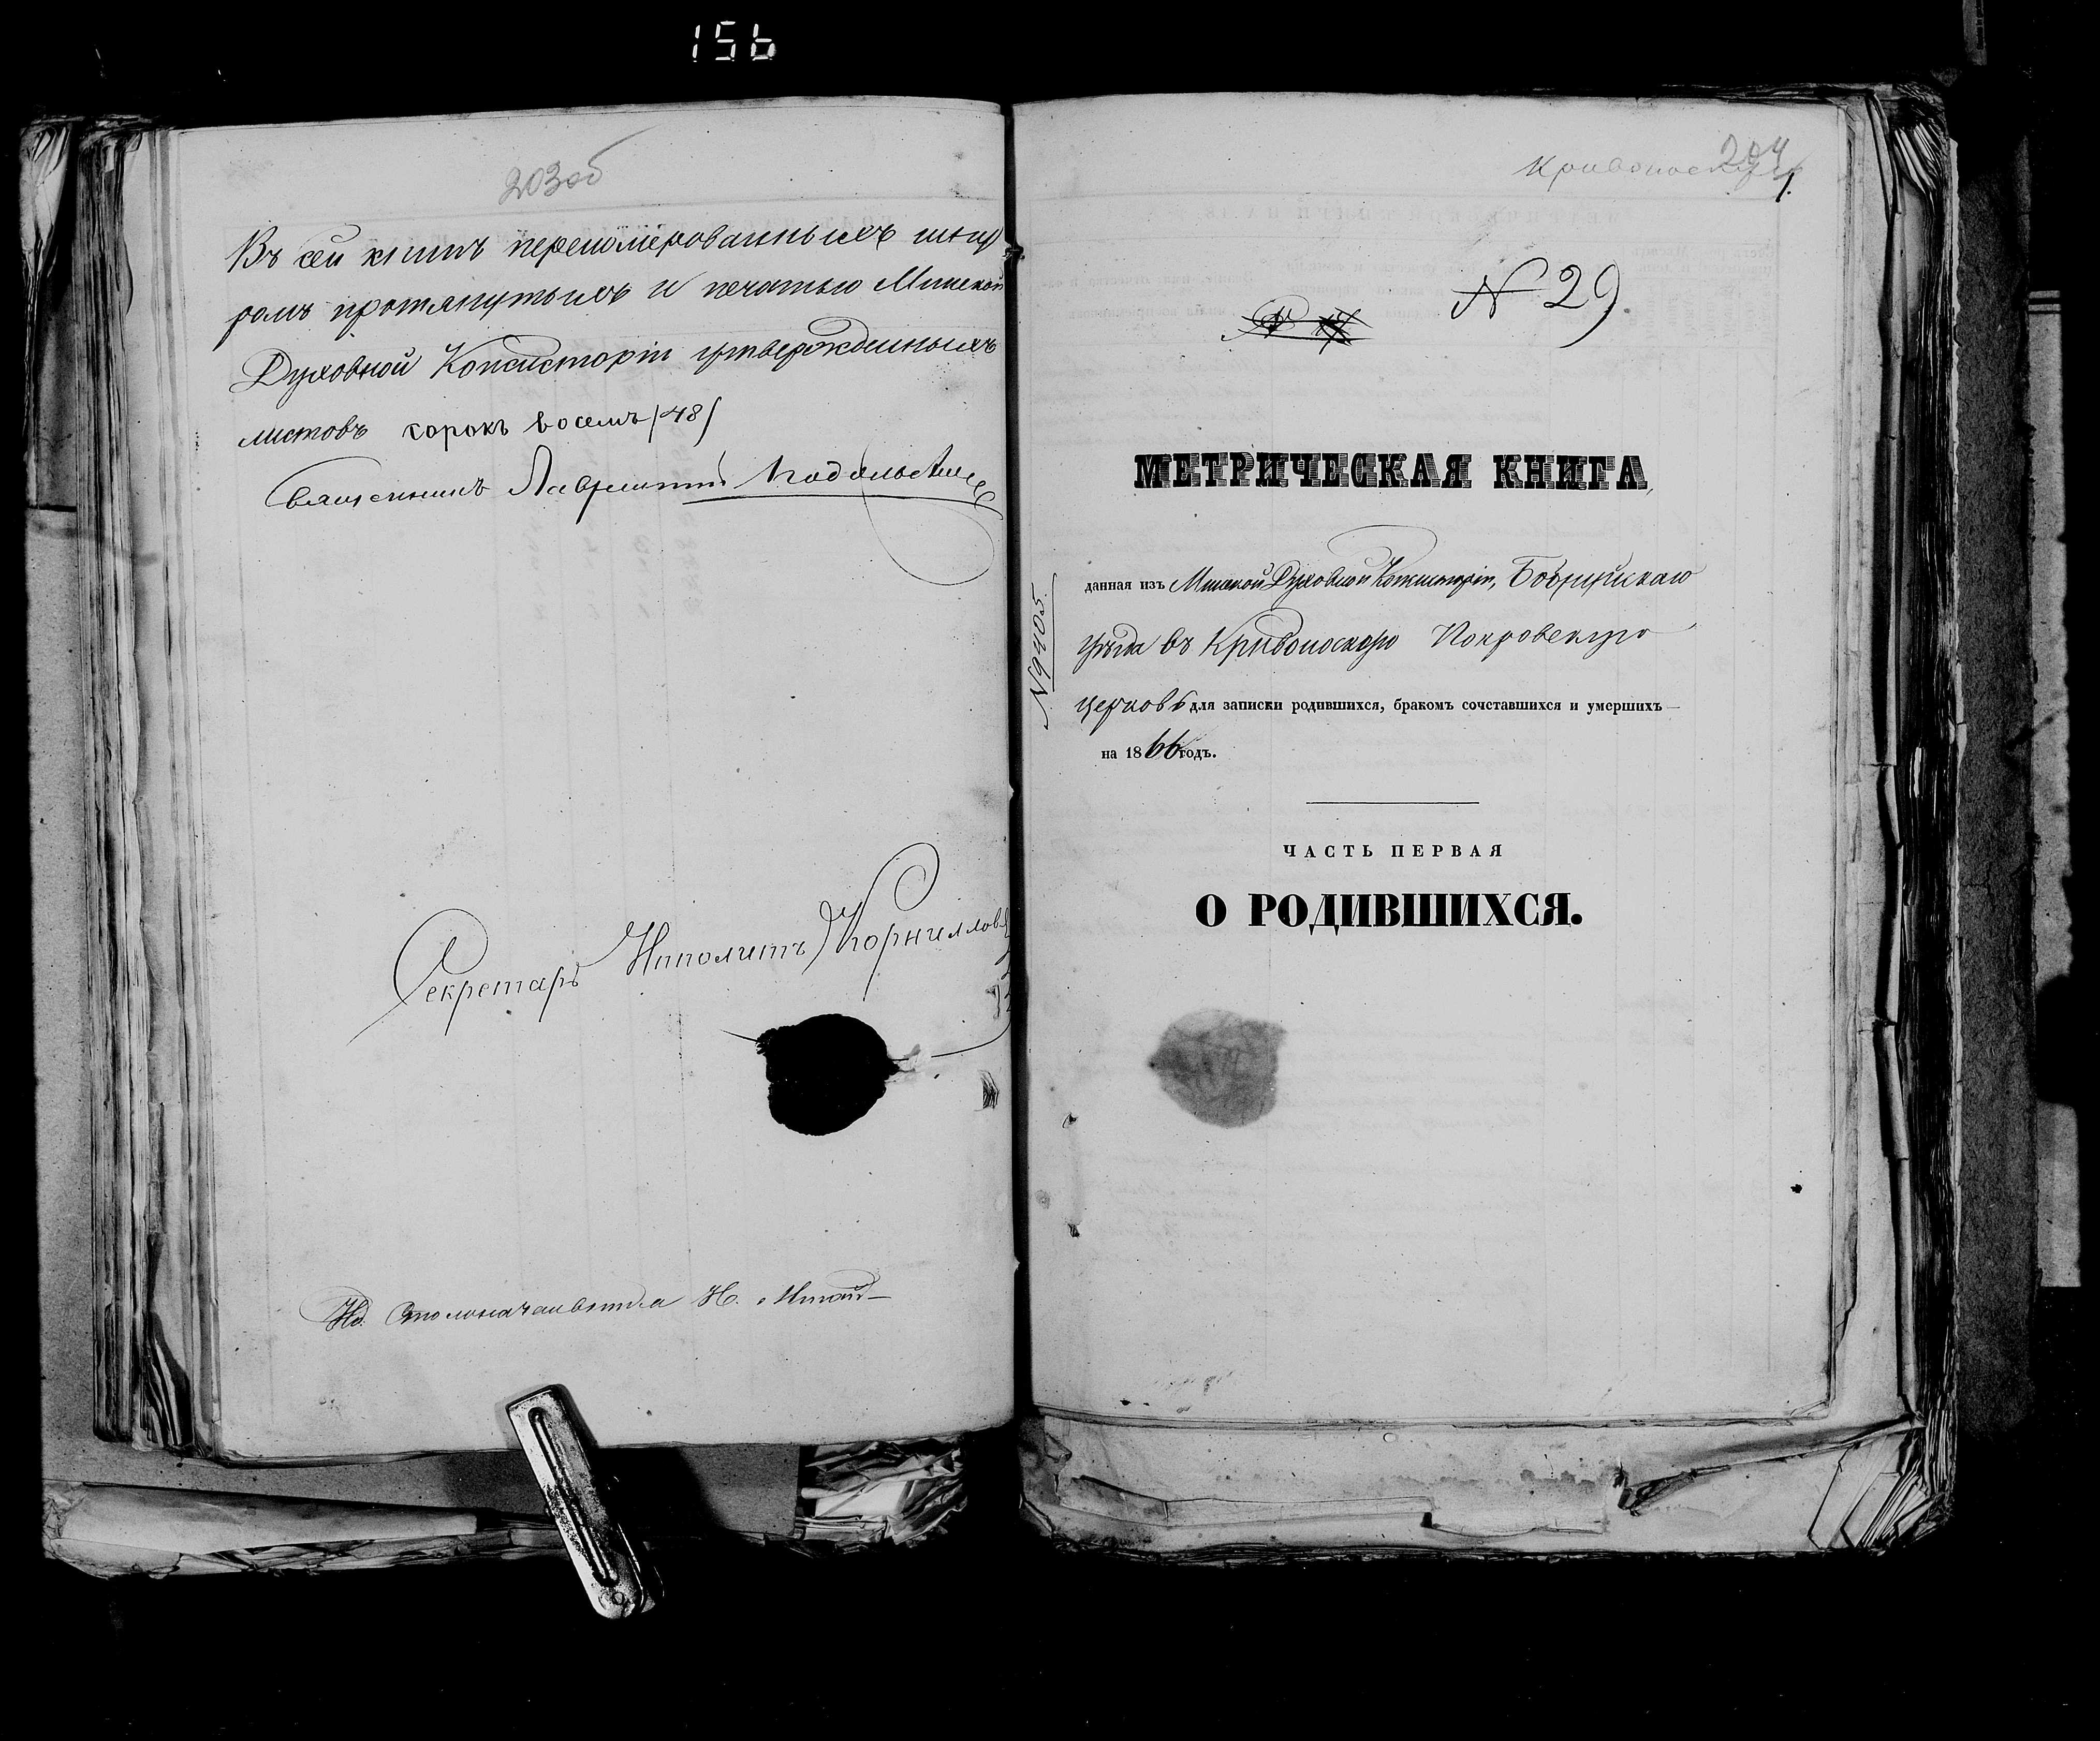 156
203об
Въ сей книгѣ переномерованныхъ шну
ромъ протянутыхъ и печатью Минской
Духовной Консисторіи утвержденныхъ
листовъ сорокъ восемь /48/
Священникъ Лаврентій Подольскій
Секретарь Ипполитъ Корниллов
Ид. Столоначальника Н.
204
Кривоноскую
1.
№ 29.
МЕТРИЧЕСКАЯ КНИГА,
данная изъ Минской Духовной Консисторіи, Бобруйскаго
уѣзда въ Кривоноскую Покровскую
церковь для записки родившихся, бракомъ сочетавшихся и умершихъ
на 1866 годъ.
№9405.
ЧАСТЬ ПЕРВАЯ
О РОДИВШИХСЯ.